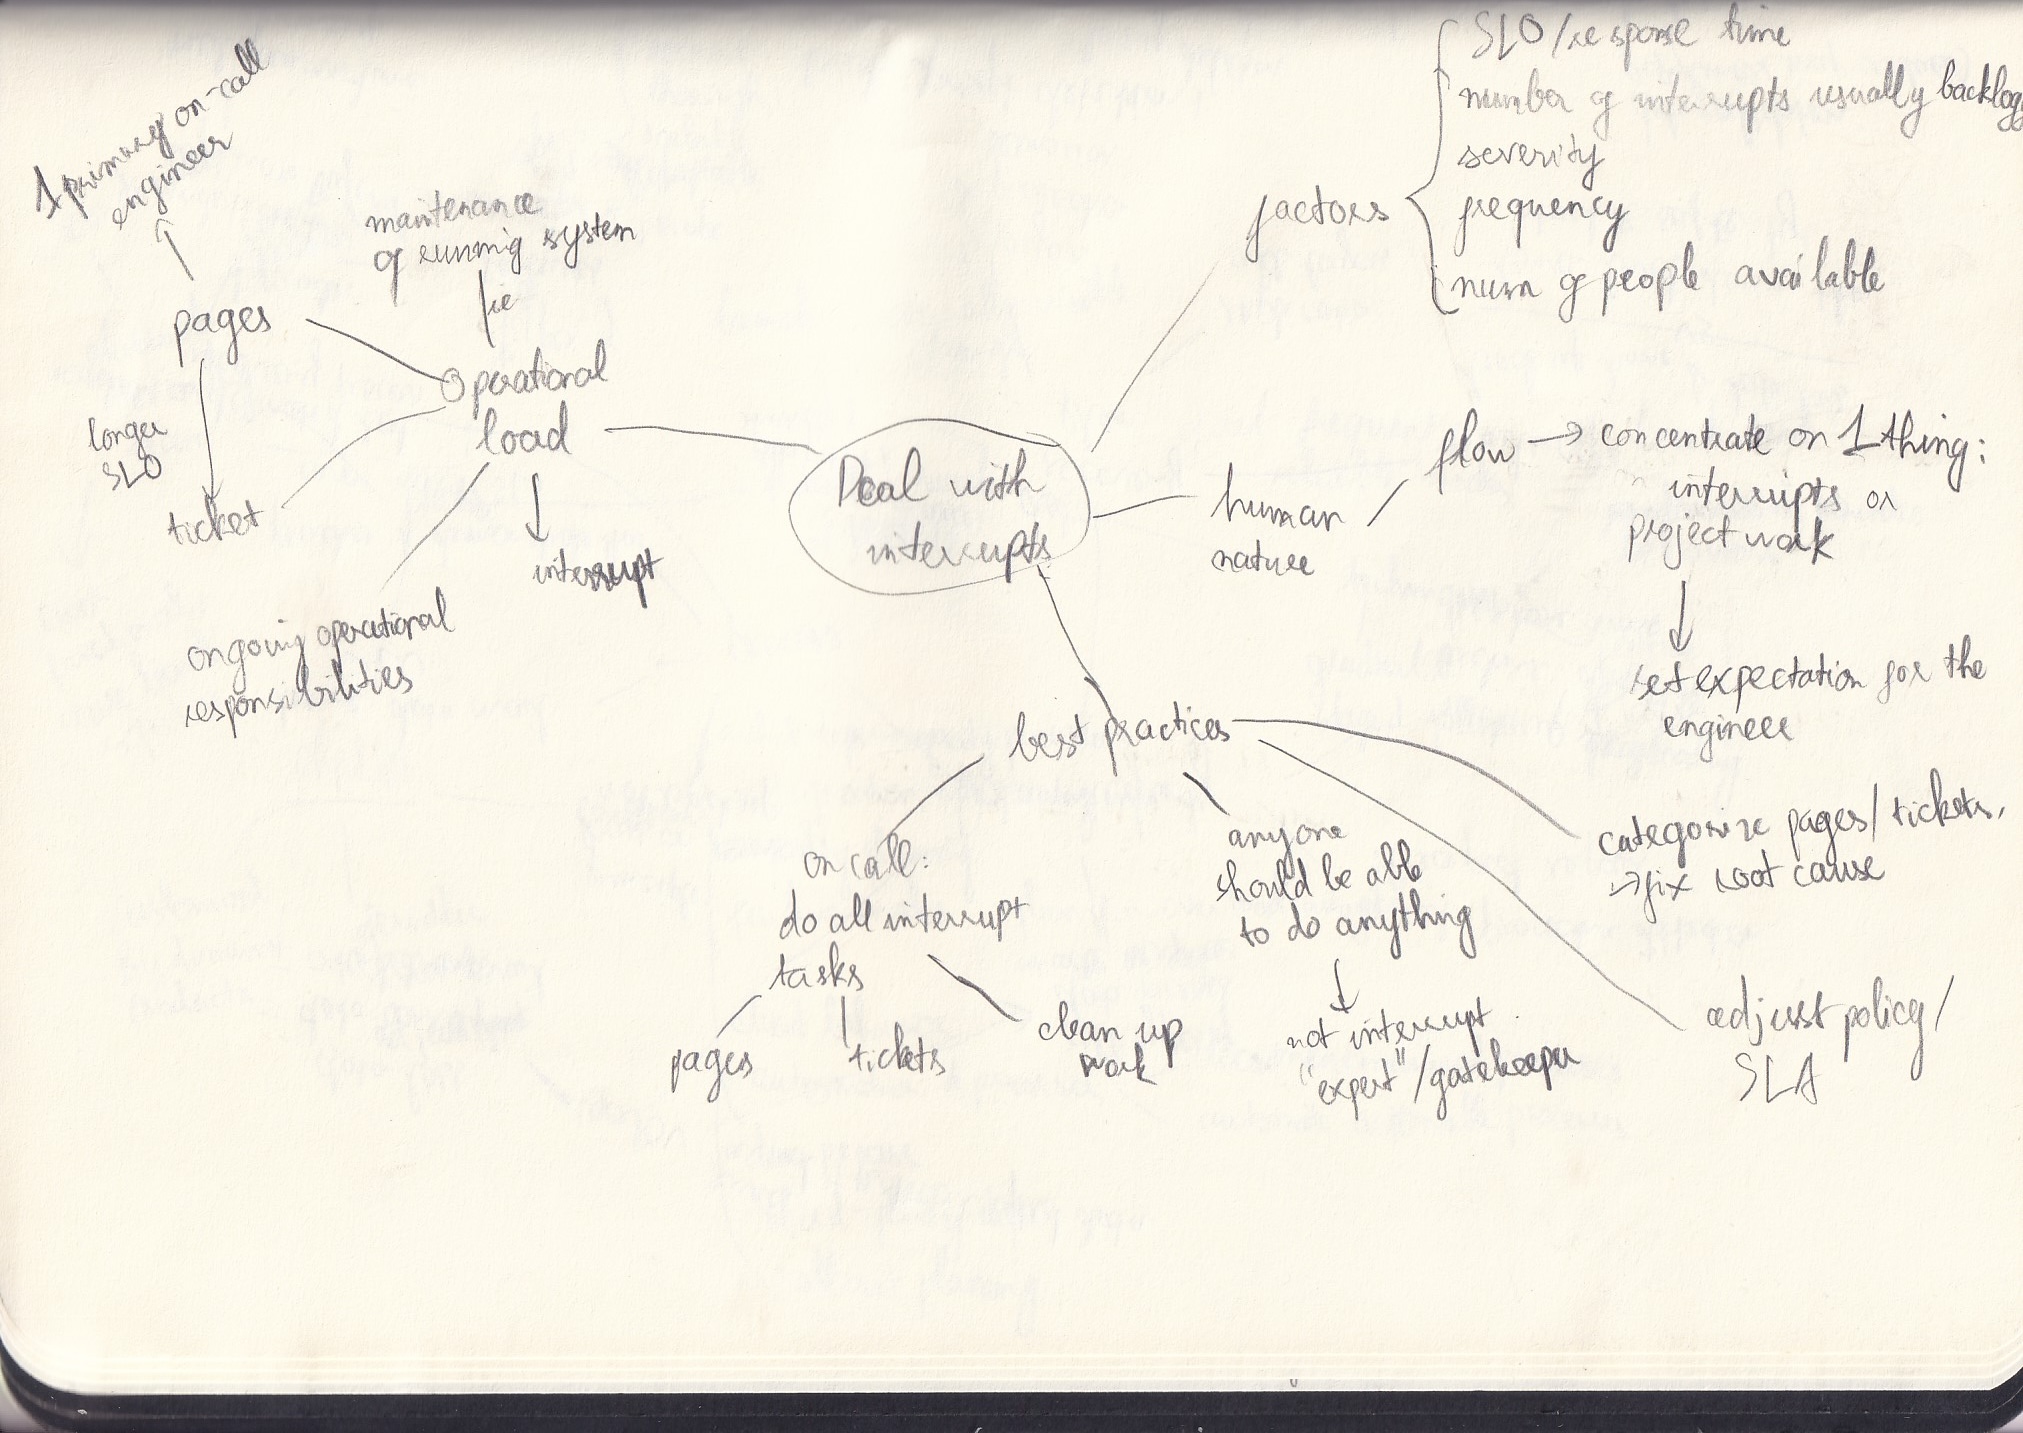 1 primary on-call
engineer
pages
longer
SLO
ticket
maintenance
of running system
ie
Operational
load
interrupt
ongoing operational
responsibilities
Deal with
interrupts
factors
SLO/response time
number of interrupts usually backlog
severity
frequency
num of people available
human
nature
flow → concentrate on 1 thing:
interrupts or
project work
set expectation for the
engineer
best practices
on call:
do all interrupt
tasks
pages
tickets
clean up
work
anyone
should be able
to do anything
not interrupt
"expert"/gatekeeper
categorize pages/tickets.
→ fix root cause
adjust policy/
SLA